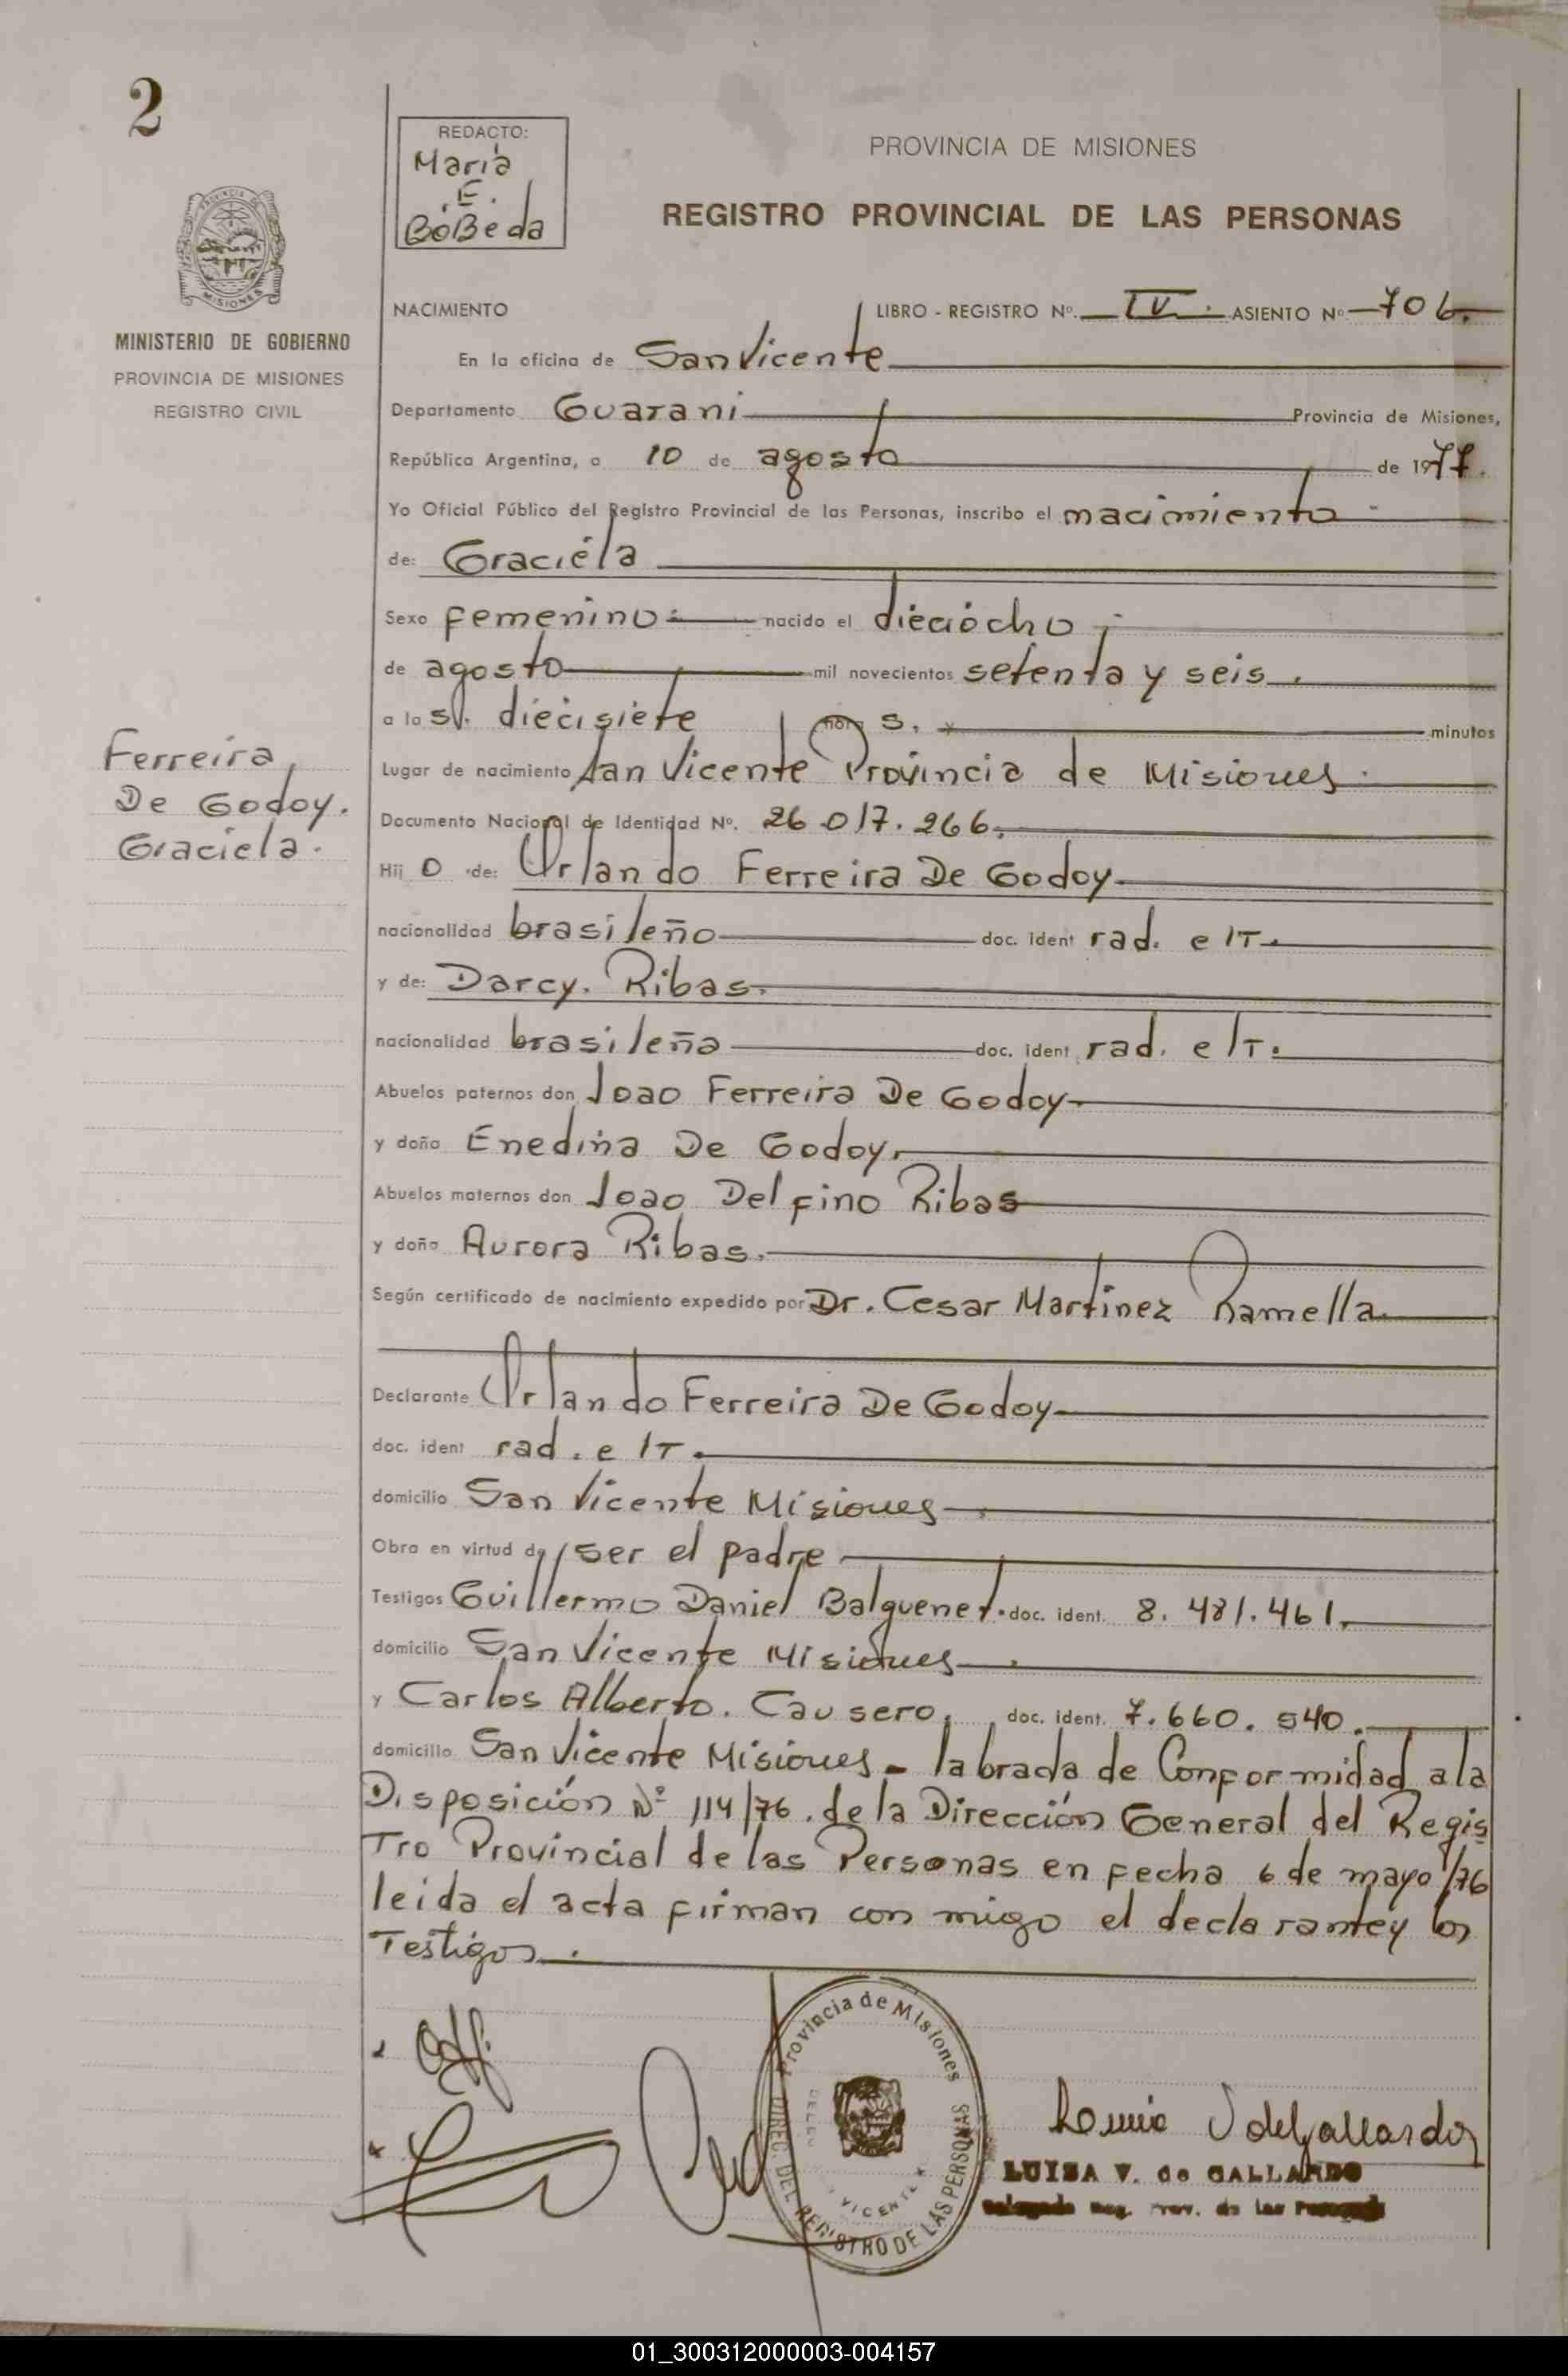 2
REDACTO:
Maria
E.
BoBeda
PROVINCIA DE MISIONES
REGISTRO PROVINCIAL DE LAS PERSONAS
PROVINCIA DE
MISIONES
MINISTERIO DE GOBIERNO
PROVINCIA DE MISIONES
REGISTRO CIVIL
NACIMIENTO LIBRO - REGISTRO Nº. IV. ASIENTO Nº 706.
En la oficina de San Vicente
Departamento Guarani Provincia de Misiones,
República Argentina, a 10 de agosto de 1977.
Yo Oficial Público del Registro Provincial de las Personas, inscribo el nacimiento
de: Graciela
Sexo femenino nacido el dieciocho
de agosto mil novecientos setenta y seis.
a la s. diecisiete hora s. minutos
Lugar de nacimiento San Vicente Provincia de Misiones.
Ferreira
De Godoy.
Graciela.
Documento Nacional de Identidad Nº. 26.017.266.
Hij o de: Orlando Ferreira De Godoy
nacionalidad brasileño doc. ident rad. e IT.
y de: Darcy. Ribas.
nacionalidad brasileña doc. ident rad. e IT.
Abuelos paternos don Joao Ferreira De Godoy
y doña Enedina De Godoy.
Abuelos maternos don Joao Delfino Ribas
y doña Aurora Ribas.
Según certificado de nacimiento expedido por Dr. Cesar Martinez Ramella
Declarante Orlando Ferreira De Godoy
doc. ident rad. e IT.
domicilio San Vicente Misiones
Obra en virtud de ser el padre
Testigos Guillermo Daniel Balguenet. doc. ident. 8.481.461.
domicilio San Vicente Misiones
y Carlos Alberto. Causero. doc. ident. 7.660.540.
domicilio San Vicente Misiones - labrada de Conformidad a la
Disposición Nº 114/76. de la Dirección General del Regis
Tro Provincial de las Personas en fecha 6 de mayo/76
leida el acta firman con migo el declarante y los
Testigos.
Provincia de Misiones
DIREC. DEL REGISTRO DE LAS PERSONAS
VICENTE
Luisa V de Gallardo
LUISA V. de GALLARDO
Delegada Reg. Prov. de las Personas
01_300312000003-004157